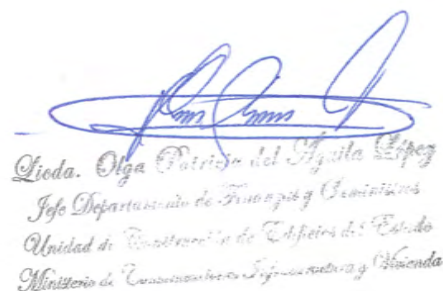 Licda. Olga Patricia del Aguila López
Jefe Departamento de Finanzas y
Unidad de Construcción de Edificios del Estado
Ministerio de Comunicaciones Infraestructura y Vivienda